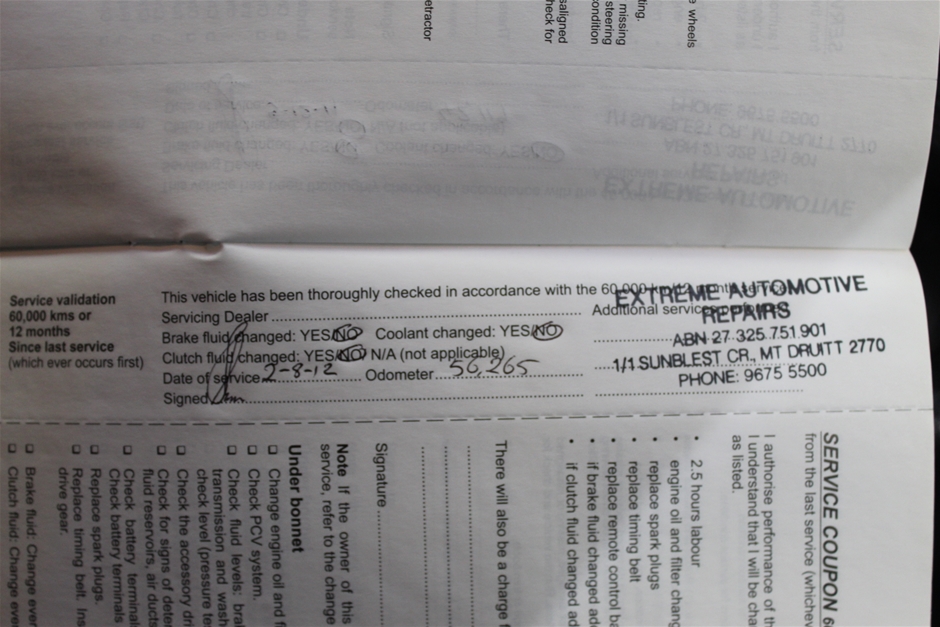 etractor
saligned
heck for
ting.
missing
steering
condition
e wheels
Service validation
60,000 kms or
12 months
Since last service
(which ever occurs first)
This vehicle has been thoroughly checked in accordance with the 60,000
Servicing Dealer
Brake fluid changed: YES/NO Coolant changed: YES/NO
Clutch fluid changed: YES/NO N/A (not applicable)
Date of service 2-8-12 Odometer 56,265
Signed
Additional service
EXTREME AUTOMOTIVE
REPAIRS
ABN 27 325 751 901
1/1 SUNBLEST CR., MT DRUITT 2770
PHONE: 9675 5500
SERVICE COUPON 6
from the last service (whichev
I authorise performance of th
I understand that I will be cha
as listed.
• 2.5 hours labour
• engine oil and filter chang
• replace spark plugs
• replace timing belt
• replace remote control ba
• if brake fluid changed ad
• if clutch fluid changed ad
There will also be a charge f
Signature
Note If the owner of this
service, refer to the change
Under bonnet
❑ Change engine oil and f
❑ Check PCV system.
❑ Check fluid levels: brak
transmission and wash
check level (pressure te
❑ Check the accessory dri
❑ Check for signs of dete
fluid reservoirs, air ducts
❑ Check battery terminal
Check battery terminals
❑ Replace spark plugs.
❑ Replace timing belt. Ins
drive gear.
❑ Brake fluid: Change ever
❑ Clutch fluid: Change ever